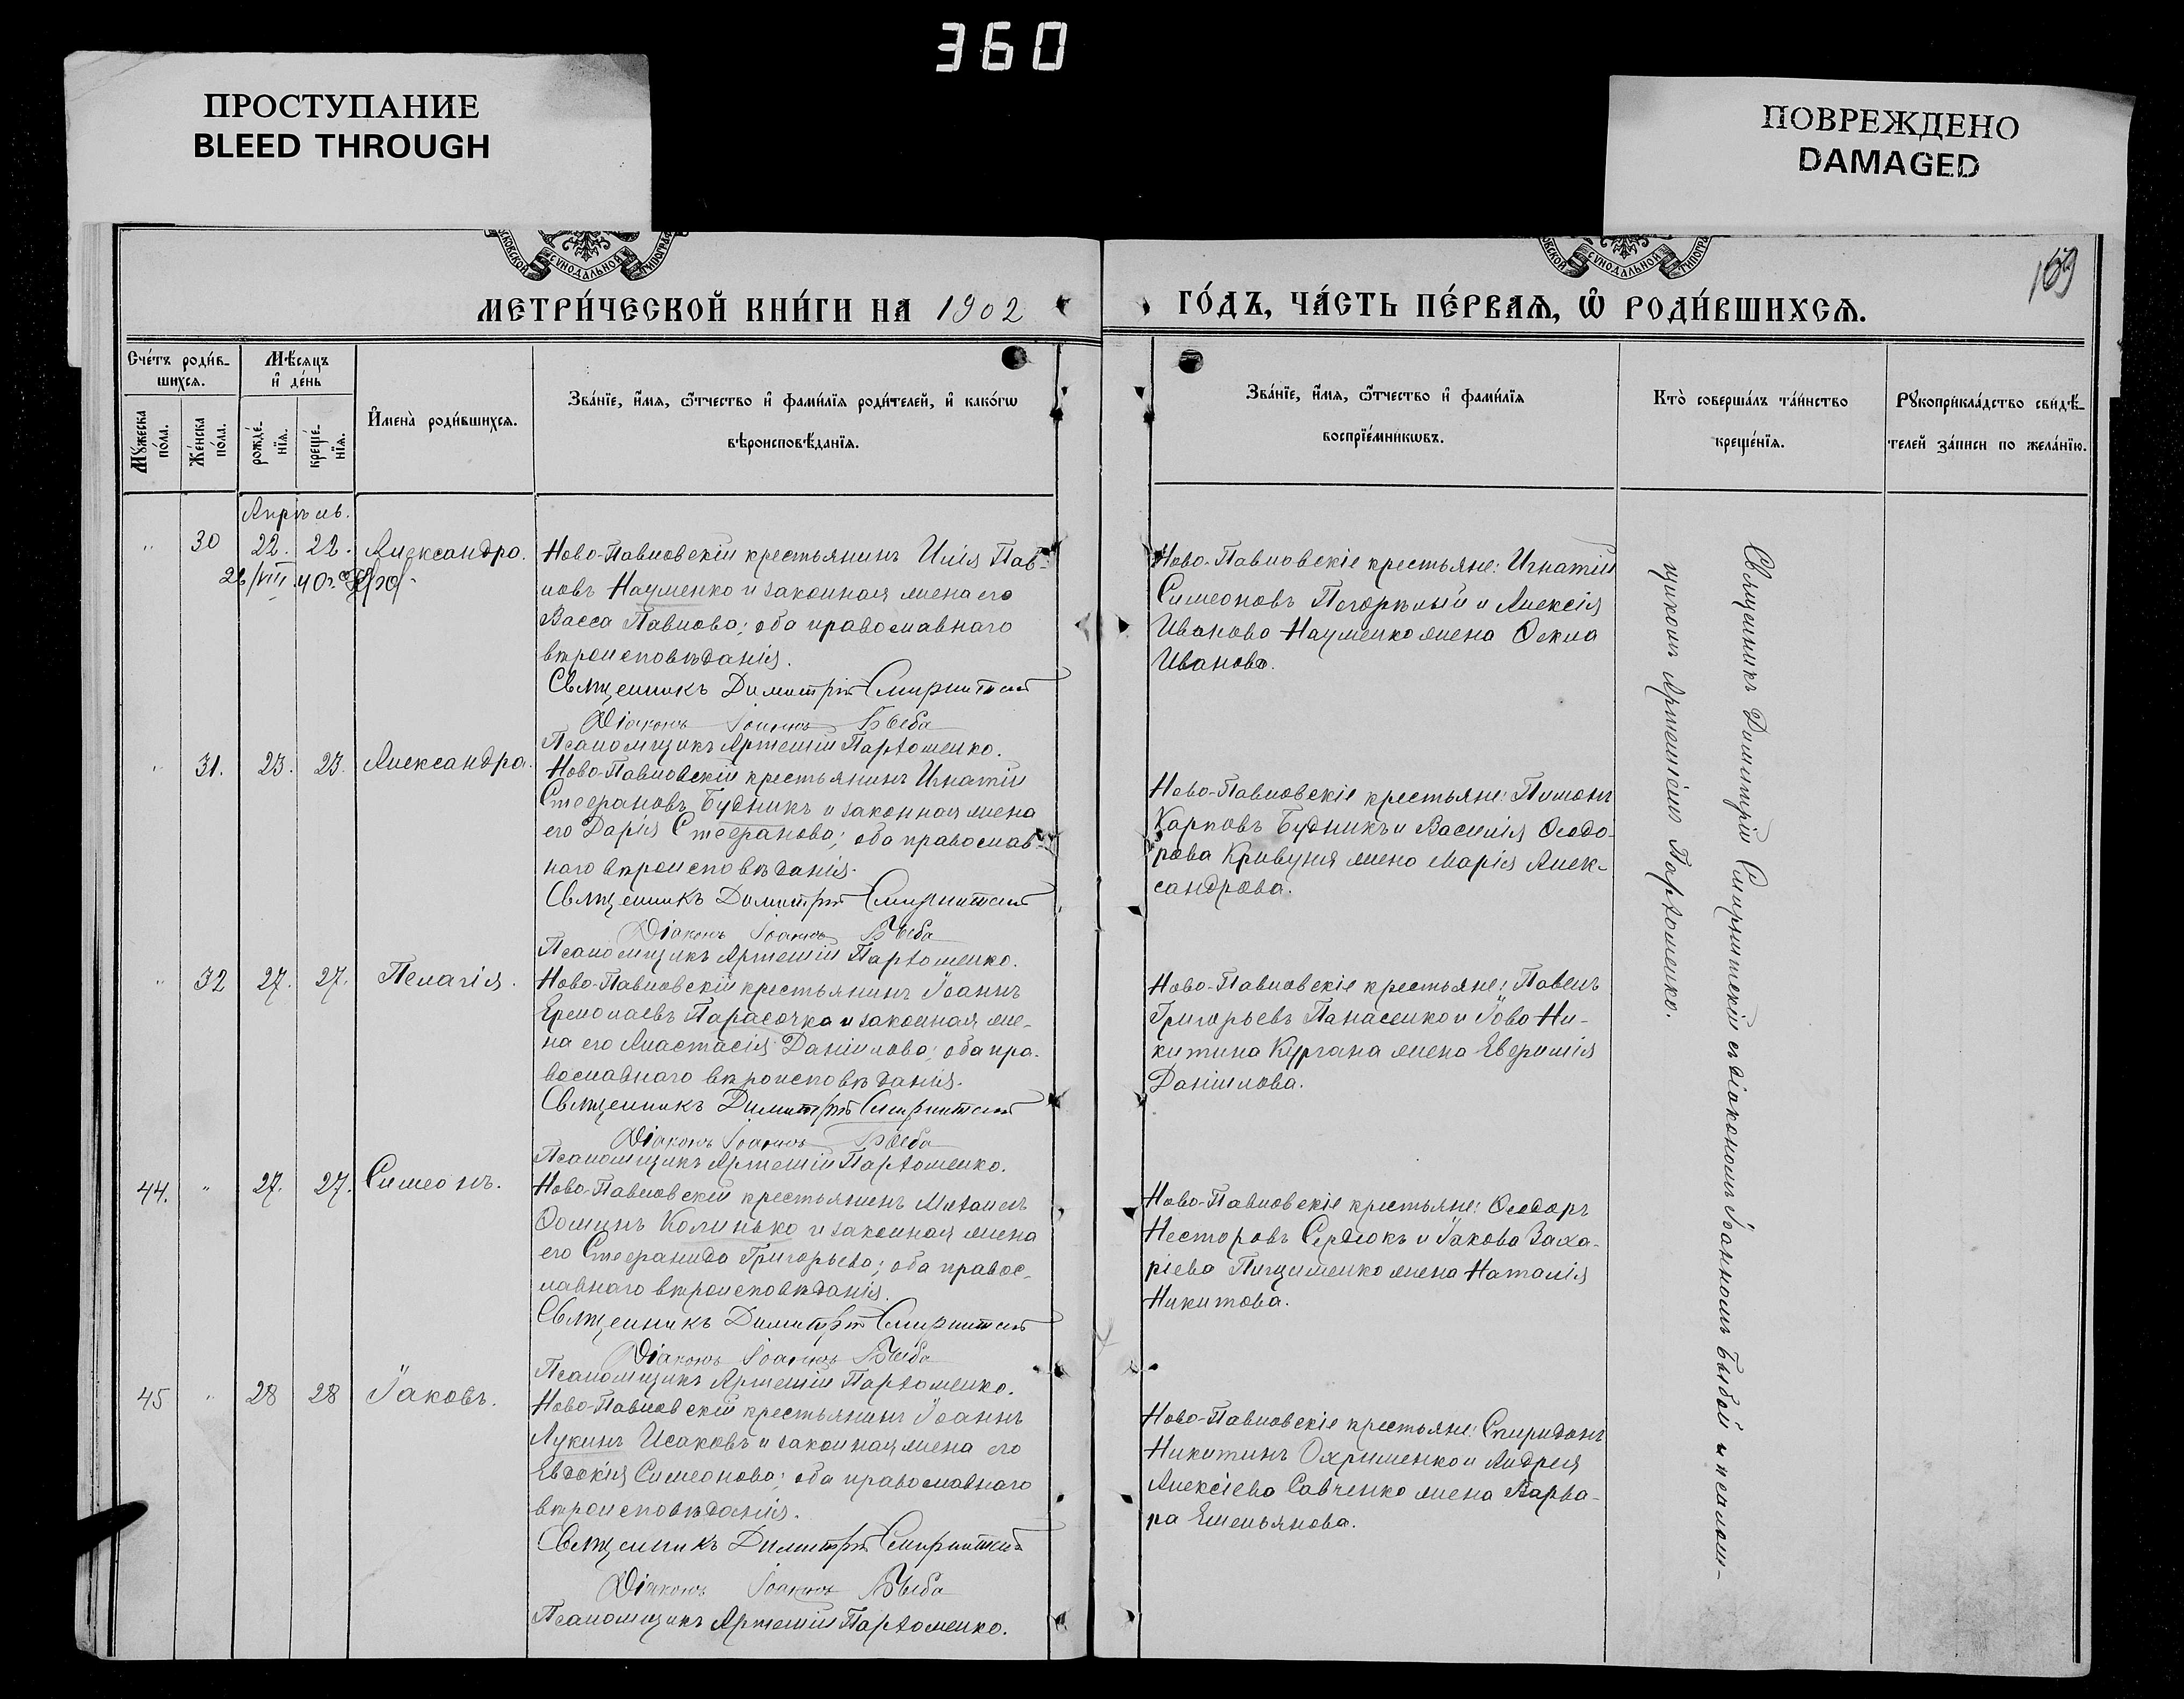 360
ПРОСТУПАНИЕ
BLEED THROUGH
ПОВРЕЖДЕНО
DAMAGED
СѴНОДАЛЬНОЙ
СѴНОДАЛЬНОЙ
169
МЕТРИ́ЧЕСКОЙ КНИ́ГИ НА 1902
ГО́ДЪ, ЧА́СТЬ ПЕ́РВАЯ, Ѡ҆ РОДИ́ВШИХСЯ.
Сче́тъ роди́в-
шихся.
Мꙋ́жеска по́ла.
Же́нска по́ла.
Мѣ́сяцъ
и҆ де́нь
рожде́-
нїя.
креще́-
нїя.
И҆мена̀ роди́вшихся.
Зва́нїе, и҆́мя, ѻ҆́тчество и҆ фами́лїя роди́телей, и҆ како́гѡ
вѣроисповѣ́данїя.
Зва́нїе, и҆́мя, ѻ҆́тчество и҆ фами́лїя
воспрїе́мникѡвъ.
Кто̀ соверша́лъ та́инство
креще́нїя.
Рꙋкоприкла́дство свидѣ́-
телей за́писи по жела́нїю.
Апрѣль.
" 30 22. 22. Александра.
Ново-Павловскій крестьянинъ Илія Пав-
ловъ Науменко и законная жена его
Васса Павлова; оба православнаго
вѣроисповѣданія.
Священникъ Димитрій Смирнитскій
Діаконъ Іоаннъ Бѣба
Псаломщикъ Артемій Пархоменко.
Ново-Павловскіе крестьяне: Игнатій
Симеоновъ Погорѣлый и Алексія
Иванова Науменко жена Ѳекла
Иванова.
" 31. 23. 23. Александра.
Ново-Павловскій крестьянинъ Игнатій
Стефановъ Будникъ и законная жена
его Дарія Стефанова; оба православ-
наго вѣроисповѣданія.
Священникъ Димитрій Смирнитскій
Діаконъ Іоаннъ Бѣба
Псаломщикъ Артемій Пархоменко.
Ново-Павловскіе крестьяне: Пимонъ
Карповъ Будникъ и Василія Ѳеодо-
рова Кривуня жена Марія Алек-
сандрова.
" 32 27. 27. Пелагія.
Ново-Павловскій крестьянинъ Іоаннъ
Ермолаевъ Парасочка и законная же-
на его Анастасія Даніилова; оба пра-
вославнаго вѣроисповѣданія.
Священникъ Димитрій Смирнитскій
Діаконъ Іоаннъ Бѣба
Псаломщикъ Артемій Пархоменко.
Ново-Павловскіе крестьяне: Павелъ
Григорьевъ Панасенко и Іова Ни-
китина Кургана жена Евфимія
Даніилова.
44. " 27. 27. Симеонъ.
Ново-Павловскій крестьянинъ Михаилъ
Ѳоминъ Колинько и законная жена
его Стефанида Григорьева; оба правос-
лавнаго вѣроисповѣданія.
Священникъ Димитрій Смирнитскій
Діаконъ Іоаннъ Бѣба
Псаломщикъ Артемій Пархоменко.
Ново-Павловскіе крестьяне: Ѳеодоръ
Несторовъ Сердюкъ и Іакова Заха-
ріева жена Наталія
Никитова.
45 " 28 28 Іаковъ.
Ново-Павловскій крестьянинъ Іоаннъ
Лукинъ Исаковъ и законная жена его
Евдокія Симеонова; оба православнаго
вѣроисповѣданія.
Священникъ Димитрій Смирнитскій
Діаконъ Іоаннъ Бѣба
Псаломщикъ Артемій Пархоменко.
Ново-Павловскіе крестьяне: Спиридонъ
Никитинъ Охрименко и Андрея
Алексіева Савченко жена Варва-
ра Емельянова.
Священникъ Димитрій Смирнитскій съ діакономъ Іоанномъ и псалом-
щикомъ Артеміемъ Пархоменко.